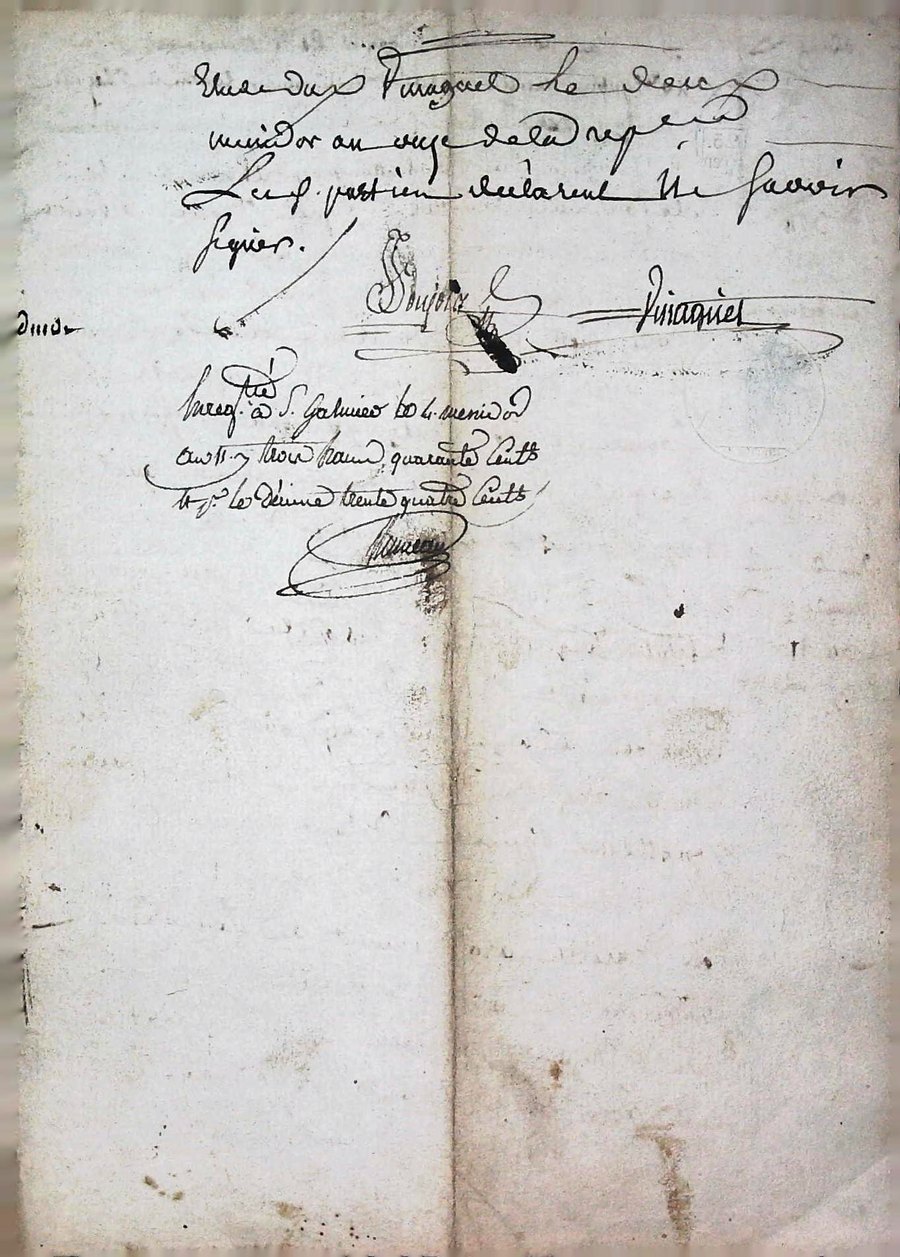 Vinaguet le deux
messidor an onze de la repub
Les parties declarent ne Scavoir
signer.
Vinaguet
Enreg.tré à S. Galmier le 4 messidor
an 11 trois francs quarante cents
p.r le décime trente quatre cents